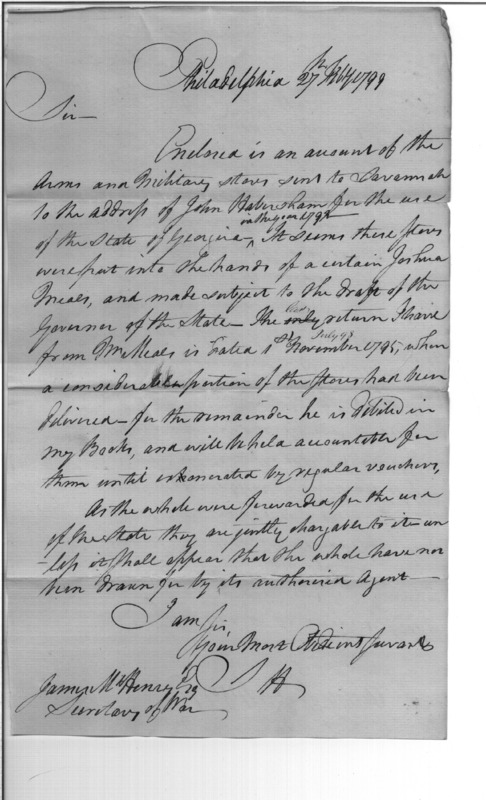 Philadelphia 27th Feby 1799
Sir —
Enclosed is an account of the
Arms and Military stores sent to Savannah
to the address of John Habersham for the use
in the year 179
of the State of Georgia, It seems these stores
were put into the hands of a certain Joshua
Meals, and made subject to the draft of the
Governor of the State — The only return I have
July 98
from Mr Meals is dated 1st November 1795, when
a considerable portion of the stores had been
delivered — for the remainder he is debited in
my Books, and will be held accountable for
them until exhonerated by regular vouchers,
As the whole were forwarded for the use
of the State they are justly chargable to it un
-less it shall appear that the whole have not
been drawn for by its authorised Agent —
I am Sir,
Your Most Obedient Servant
James McHenry Esq
S H
Secretary of War